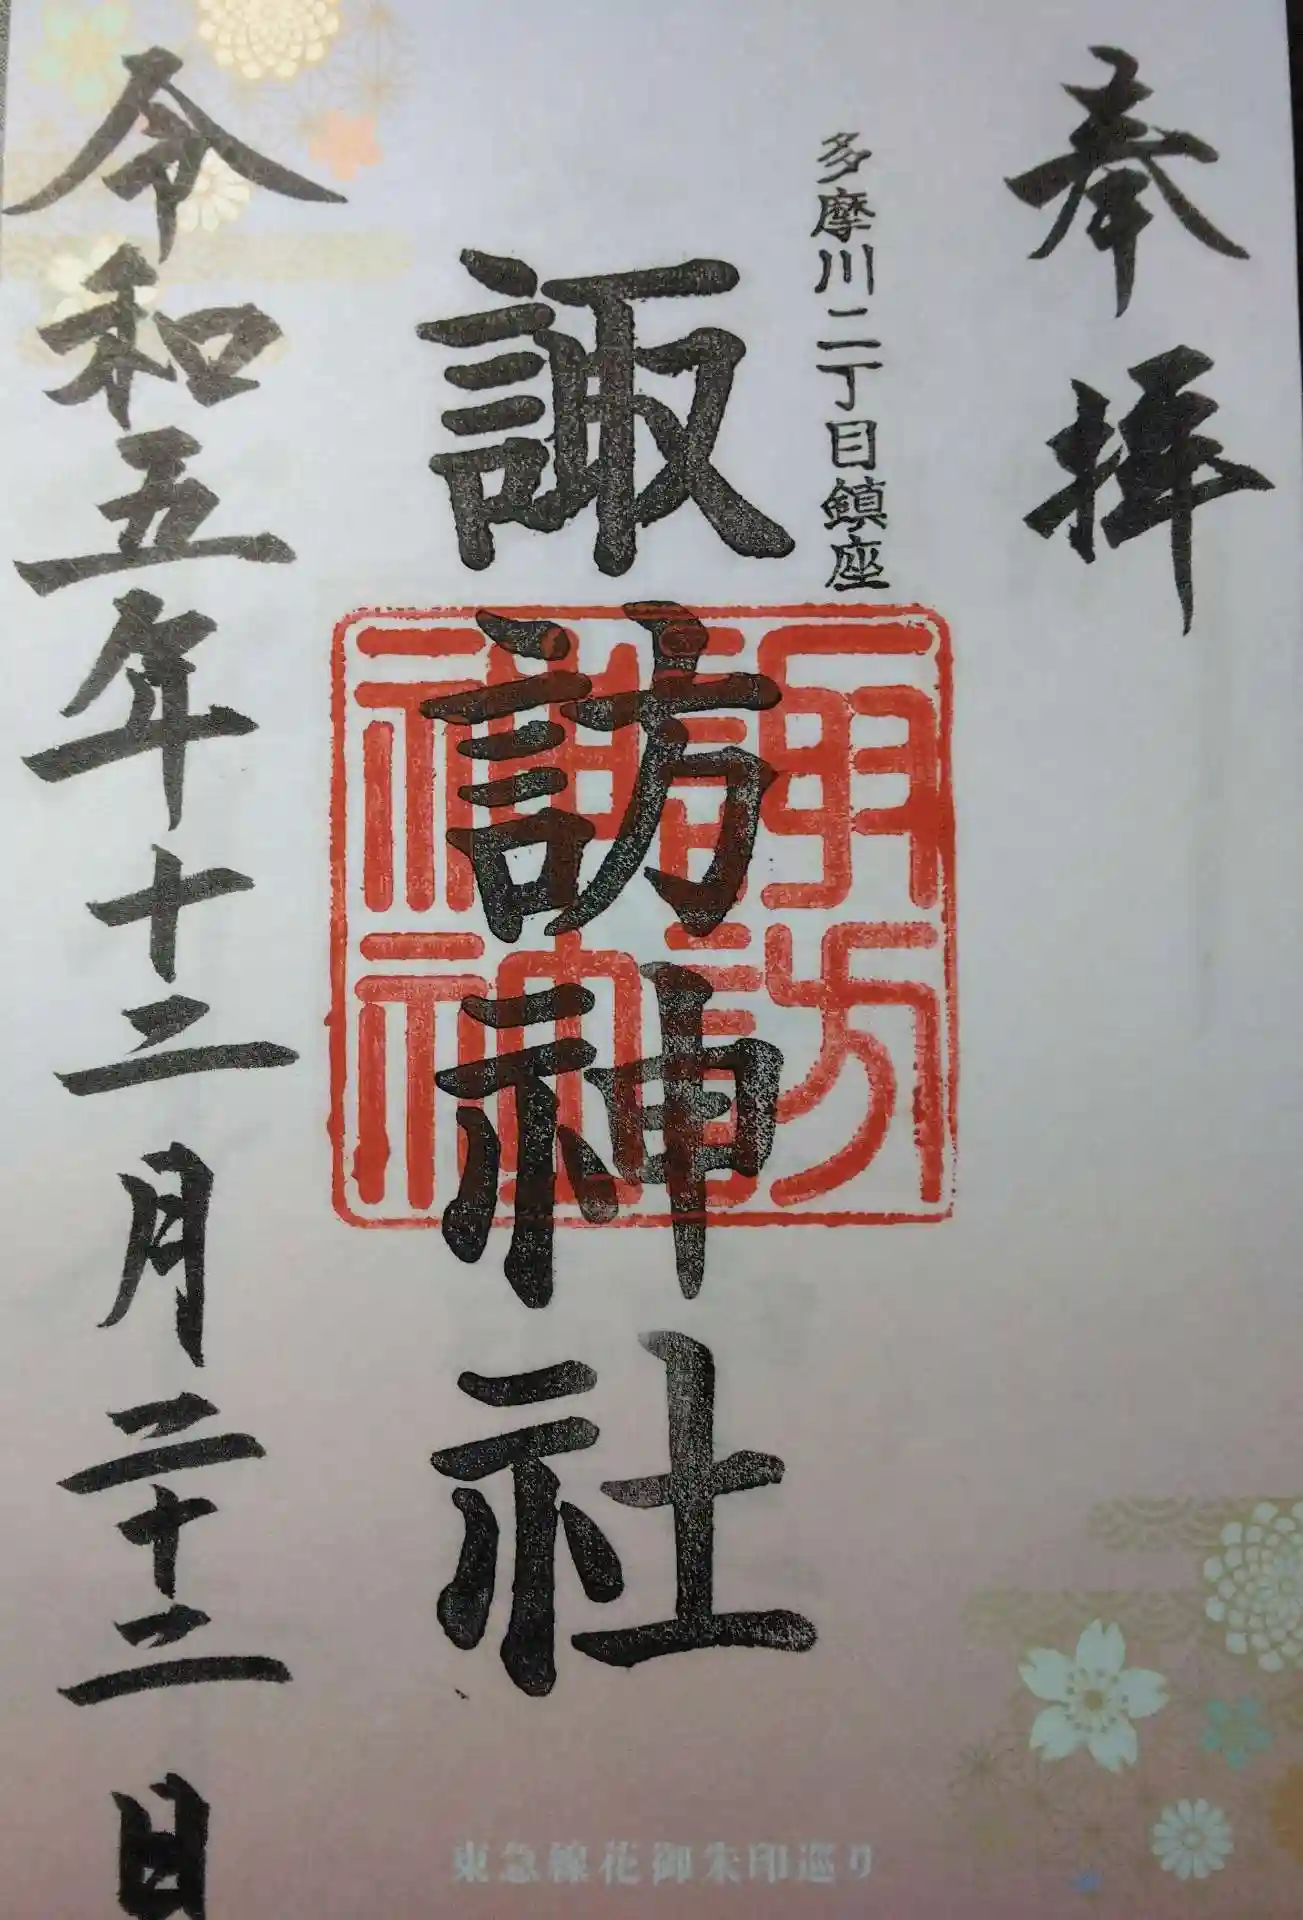 奉拝
多摩川二丁目鎮座
諏訪神社
諏訪
神社
令和五年十二月二十二日
東急線花御朱印巡り